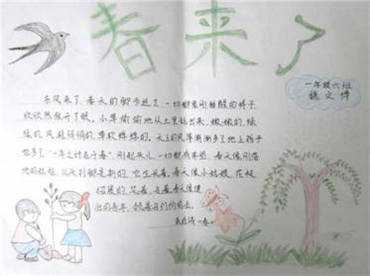 春来了
一年级六班
东风来了,春天的脚步近了,一切都像刚睡醒的样子,
欣欣然张开了眼。小草偷偷地从土里钻出来,嫩嫩的,绿
绿的。风轻悄悄的,草软绵绵的。天上的风筝渐渐多了,地上孩子
也多了。"一年之计在于春",刚起头儿,一切都有希望。春天像刚落
地的娃娃,从头到脚是新的,它生长着。春天像小姑娘,花枝
招展的,笑着,走着。春天像健
的青年,领着我们向前去。